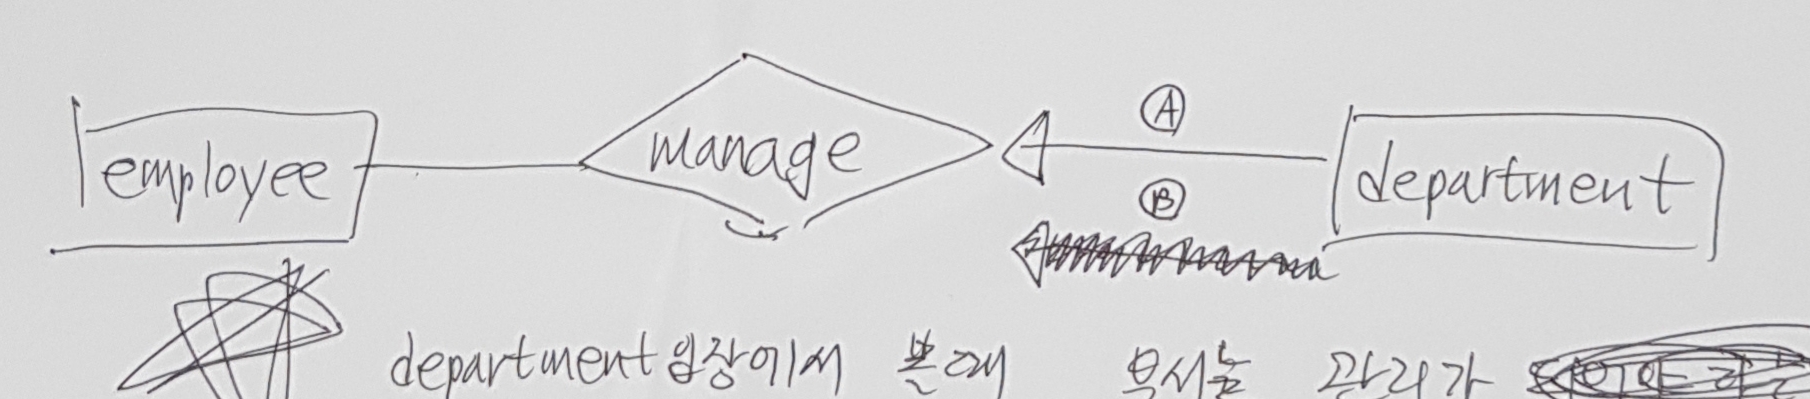 Ⓐ
employee manage department
Ⓑ
department 입장에서 볼때 부서는 관리가